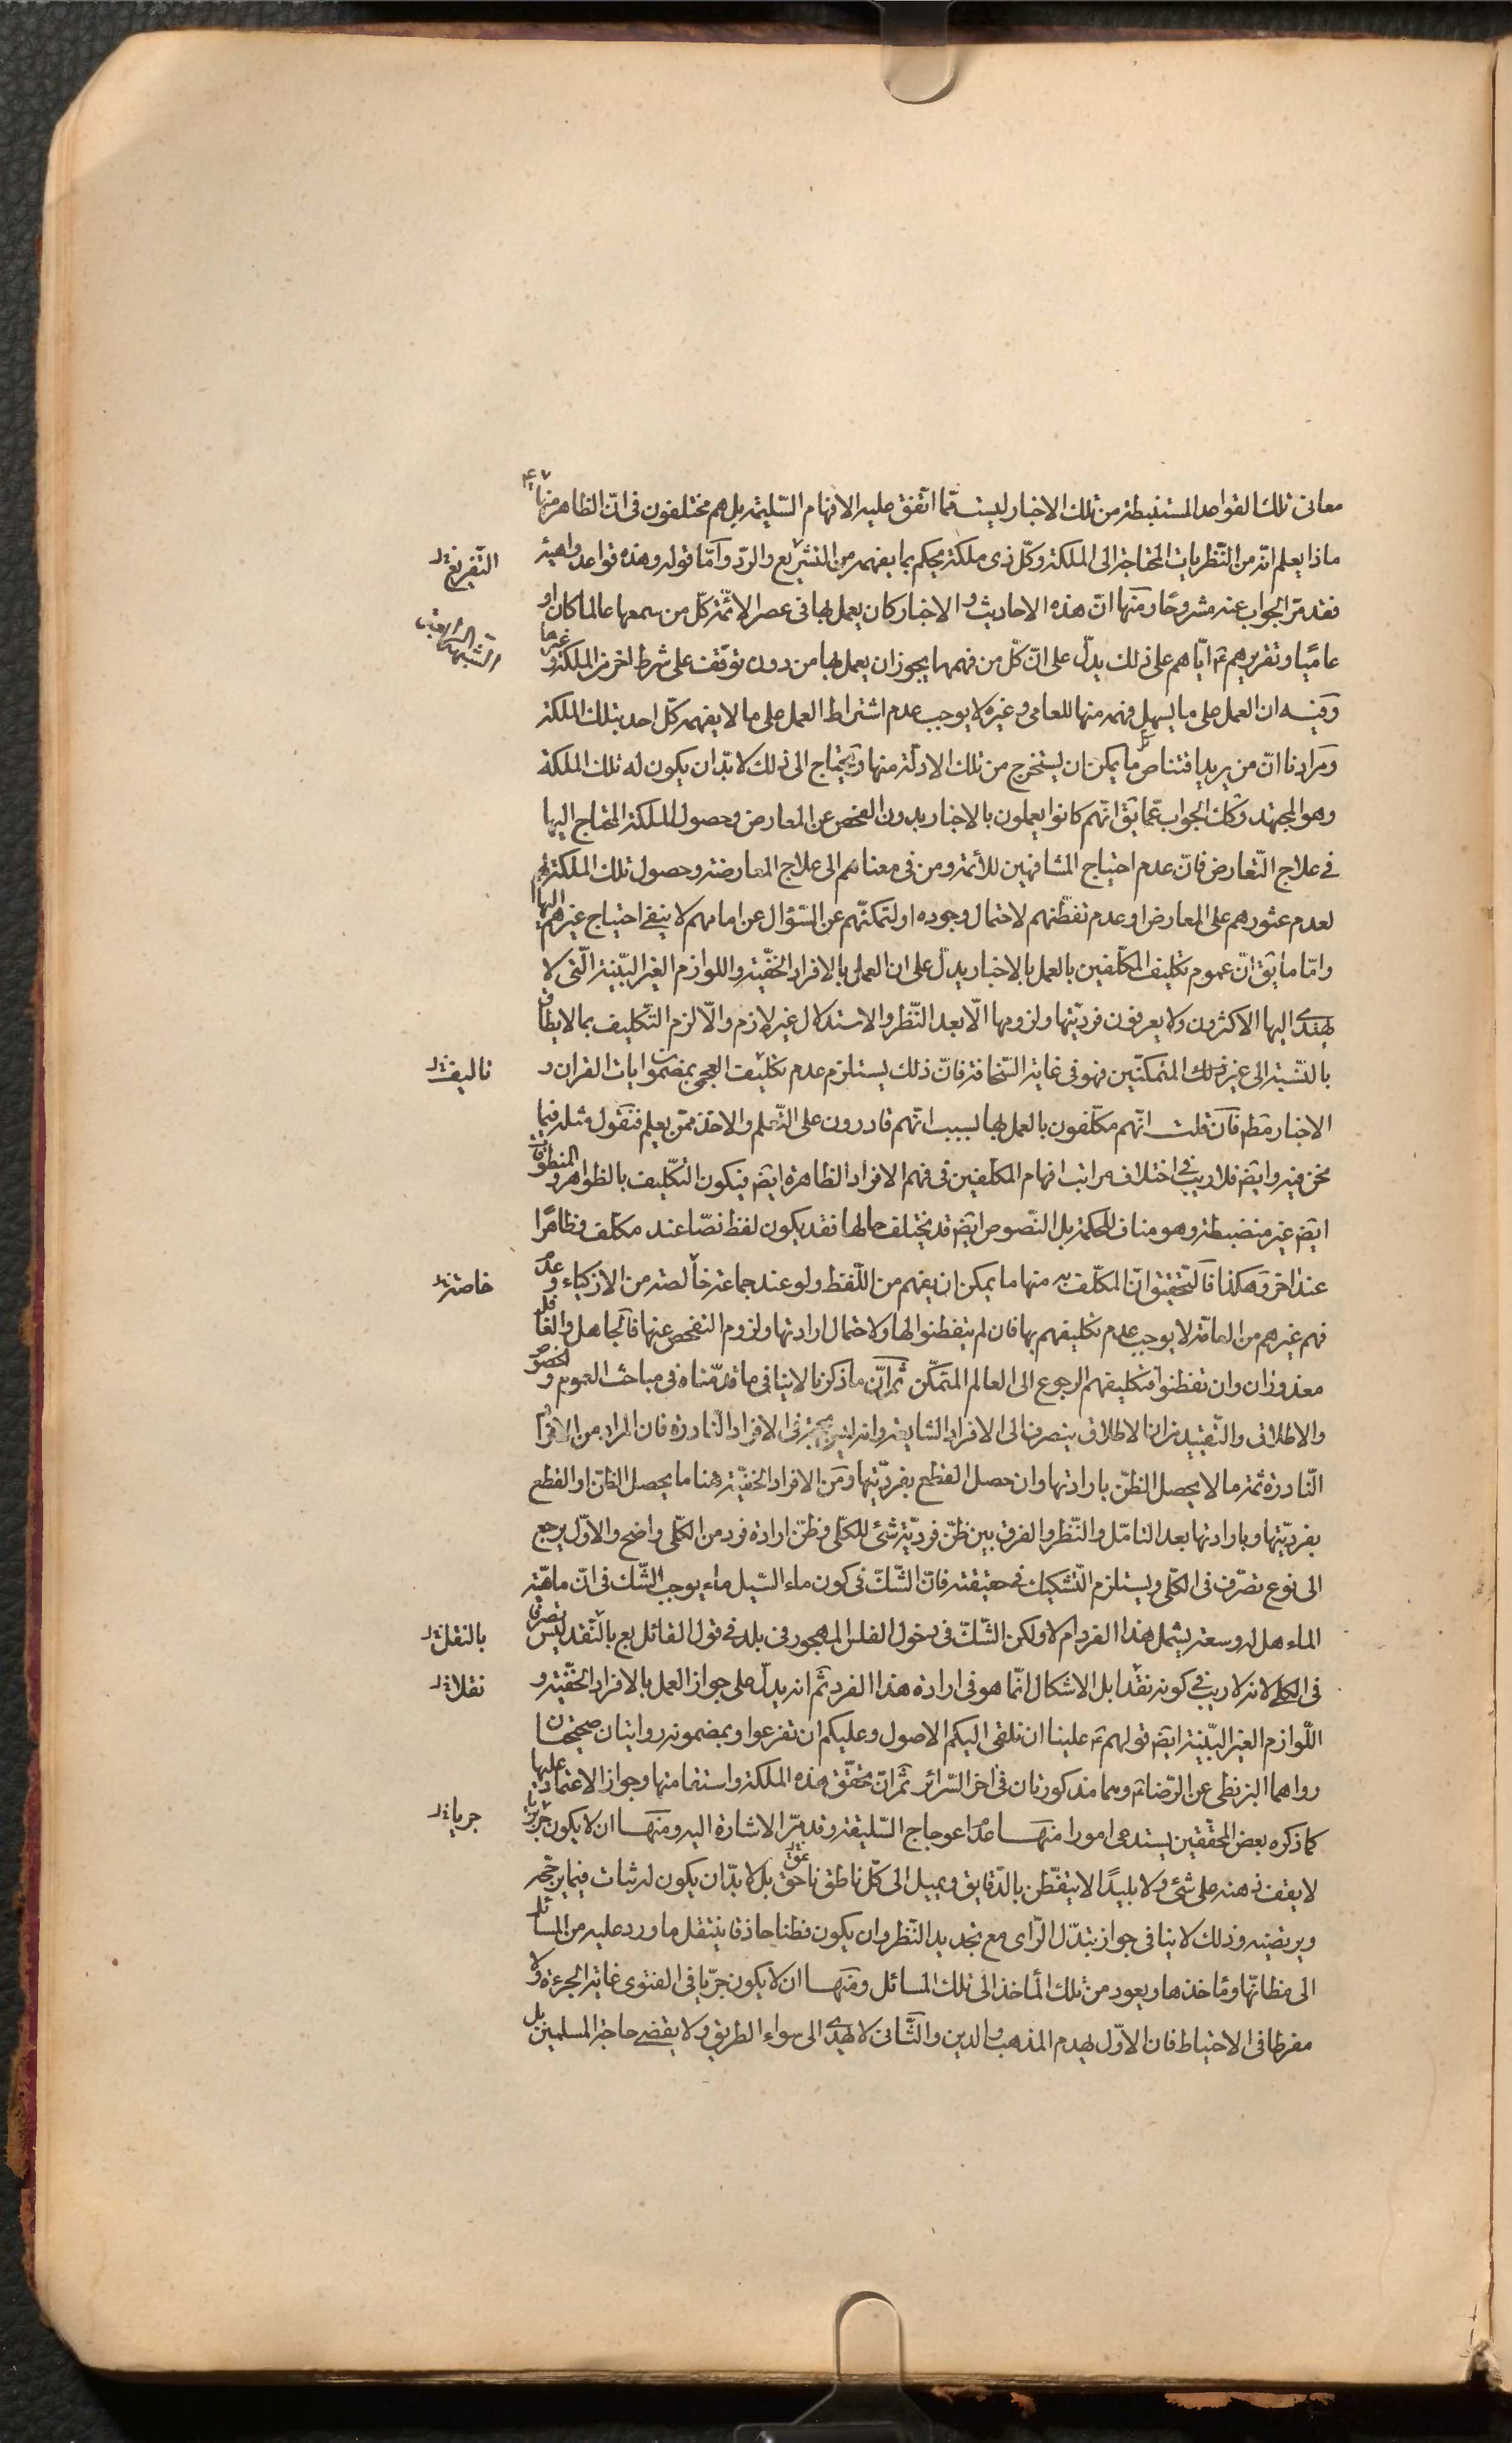 معانى تلك القواعد المستنبطة من تلك الاخبار ليست ممّا اتّفق عليه الافهام السّليمة بل هم مختلفون فى انّ الظاهر منها
ماذا يعلم انّه من النّظريات المحتاجة الى الملكة وكلّ ذى ملكة يحكم بما يفهمه من التشريع والردّ وامّا قوله وهذه قواعد واهية
التّفريع
فقد مرّ الجواب عنه مشروحًا ومنها انّ هذه الاحاديث و الاخبار كان يعمل بها فى عصر الائمّة كلّ من سمعها عالما كان او
الشبهة الرابعة
عاميًا وتقريرهم ع ايّاهم على ذلك يدلّ على انّ كلّ من فهمها يجوز ان يعمل بها من دون توقّف على شرط اخر من الملكة و غيرها
وفيه ان العمل على ما يسهل فهمه منها للعامى و غيره لا يوجب عدم اشتراط العمل على ما لا يفهمه كلّ احد بتلك الملكة
ومرادنا انّ من يريد اقتناص كلّ ما يمكن ان يستخرج من تلك الادلّة منها ويحتاج الى ذلك لا بدّ ان يكون له تلك الملكة
وهو المجتهد وكك الجواب عمّا يق انّهم كانوا يعملون بالاخبار بدون الفحص عن المعارض وحصول الملكة المحتاج اليها
فى علاج التّعارض فانّ عدم احتياج المشافهين للائمة ومن فى معناهم الى علاج المعارضة وحصول تلك الملكة لهم
لعدم عثورهم على المعارض او عدم تفطّنهم لاحتمال وجوده او لتمكنّهم عن السّؤال عن امامهم لا ينفى احتياج غيرهم اليها
وامّا ما يق انّ عموم تكليف المكلّفين بالعمل بالاخبار يدلّ على ان العمل بالافراد الخفّية واللوازم الغير البيّنة الّتى لا
يهتدى اليها الاكثرون ولا يعرفون فرديّتها ولزومها الّا بعد النّظر والاستدلال غير لازم والّا لزم التّكليف بما لا يطاق
بالنّسبة الى غير ذلك المتمكنّين فهو فى غاية السّخافة فانّ ذلك يستلزم عدم تكليف العجمى بمضمون ايات القران و
تاليف
الاخبار مطم فان قلت انّهم مكلّفون بالعمل بها لسبب انّهم قادرون على التّعلم والاخذ ممّن يعلم فنقول مثله فيما
نحن فيه وايضم فلا ريب فى اختلاف مراتب افهام المكلّفين فى فهم الافراد الظاهرة ايضم فيكون التكّليف بالظواهر و المنطوقات
ايضم غير منضبطة وهو مناف للحكمة بل النّصوص ايضم قد يختلف حالها فقد يكون لفظ نصّا عند مكلّف وظاهرًا
عند اخر وهكذا فالتّحقيق انّ المكلّف به منها ما يمكن ان يفهم من اللّفظ ولو عند جماعة خالصة من الازكياء و عدم
خاصّة
فهم غيرهم من العامّة لا يوجب عدم تكليفهم بها فان لم يتفطنوا لها ولاحتمال ارادتها ولزوم التفحص عنها فالجاهل والغافل
معذوران وان تفطنوا فتكليفهم الرجوع الى العالم المتمكّن ثمّ انّ ما ذكرنا لا ينافى ما قدّمناه فى مباحث العموم و الخصوص
والاطلاق والتّقييد من ان الاطلاق ينصرف الى الافراد الشايعة وانه ليس بحجّة فى الافراد النّادرة فان المراد من الافراد
النّادرة ثمّة ما لا يحصل الظنّ بارادتها وان حصل القطع بفرديّتها ومن الافراد الخفيّة هنا ما يحصل الظنّ او القطع
بفرديّتها وبارادتها بعد التامّل والنّظر والفرق بين ظنّ فرديّة شئ للكلّى وظنّ ارادة فرد من الكلّى واضح والاوّل يرجع
الى نوع تصرّف فى الكلّى ويستلزم التّشكيك فى حقيقته فانّ الشّكّ فى كون ماء السّيل ماء يوجب الشّك فى انّ ماهيّة
الماء هل له وسعة يشمل هذا الفرد ام لا ولكن الشّكّ فى دخول الفلس المهجور فى بلد فى قول القائل بع بالنّقد ليس تصرفا
بالنقل
فى الكلى لانه لا ريب فى كونه نقدا بل الاشكال انّما هو فى ارادة هذا الفرد ثم انه يدلّ على جواز العمل بالافراد الخفّية و
نقلا
اللّوازم الغير البيّنة ايضم قولهم ع علينا ان نلقى اليكم الاصول وعليكم ان تفرعوا وبمضمونه روايتان صحيحتان
رواهما البزنطى عن الرّضا ع وهما مذكورتان فى اخر السّرائر ثمّ انّ تحقّق هذه الملكة واستقامتها وجواز الاعتماد عليها
كما ذكره بعض المحقّقين يستدعى امورا منها عدم اعوجاج السّليقة وقد مرّ الاشارة اليه ومنها ان لا يكون
جربا
لا يقف ذهنه على شئ ولا بليدًا لا يتفطّن بالدّقايق ويميل الى كلّ ناطق ناعق بل لا بدّ ان يكون له ثبات فيما يرجّحه
ويرتضيه وذلك لا ينافى جواز تبدّل الرّاى مع تجديد النّظر وان يكون فطنا حاذقا ينتقل ما ورد عليه من المسائل
الى مظانّها ومأخذها ويعود من تلك المأخذ الى تلك المسائل ومنها ان لا يكون جريّا فى الفتوى غاية الجرءة و لا
مفرطا فى الاحتياط فان الاوّل يهدم المذهب والدين والثّانى لا يهدى الى سواء الطريق ولا يقضى حاجة المسلمين بل